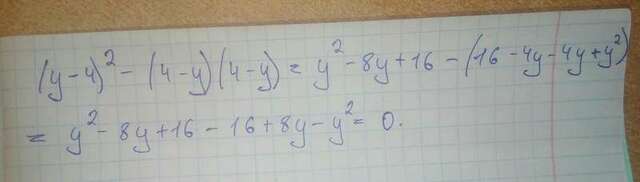 (y-4)² - (4-y)(4-y) = y² - 8y + 16 - (16 - 4y - 4y + y²)
= y² - 8y + 16 - 16 + 8y - y² = 0.